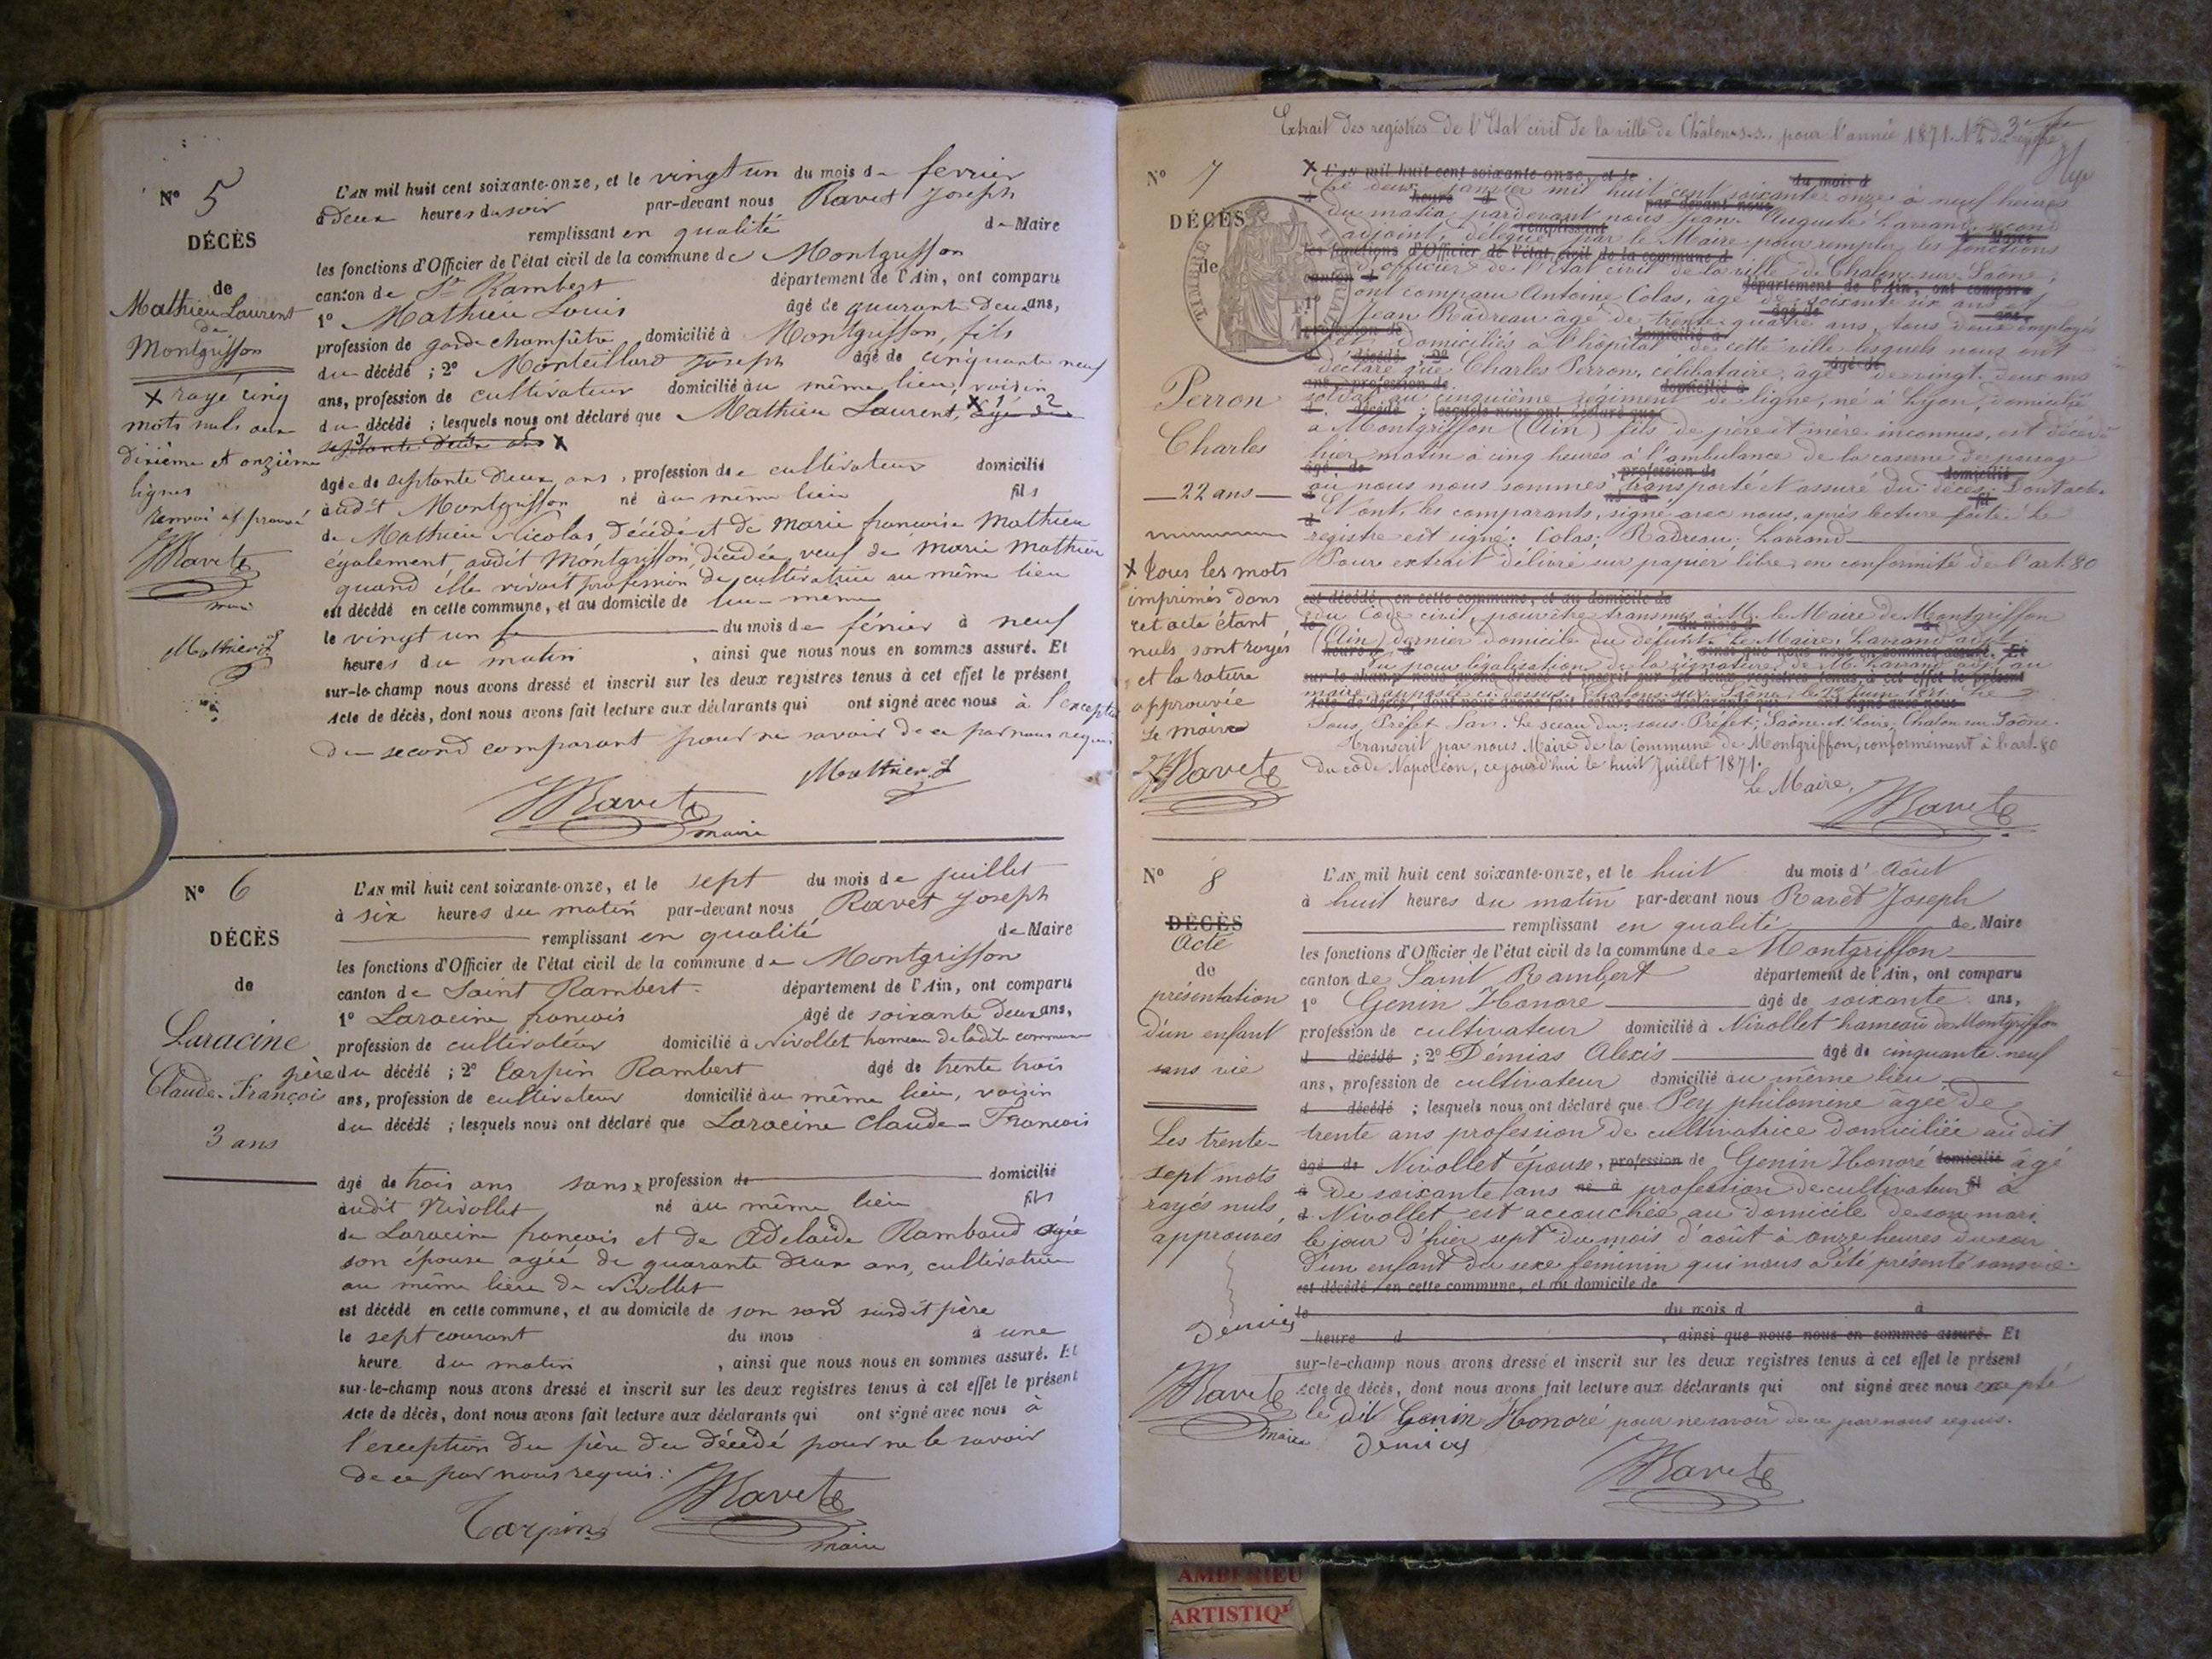 N° 5
DÉCÈS
de
Mathieu Laurent
de
Montgriffon
X rayé cinq
mots nuls aux
dixième et onzième
lignes
renvoi approuvé
JRavet
maire
Mathieu L
L'AN mil huit cent soixante-onze, et le vingt un du mois de fevrier
à deux heures du soir par-devant nous Ravet Joseph
remplissant en qualité de Maire
les fonctions d'Officier de l'état civil de la commune de Montgriffon
canton de St Rambert département de l'Ain, ont comparu
1° Mathieu Louis âgé de quarante deux ans,
profession de garde champêtre domicilié à Montgriffon, fils
du décédé ; 2° Monteillard Joseph âgé de cinquante neuf
ans, profession de cultivateur domicilié au même lieu, voisin
du décédé ; lesquels nous ont déclaré que Mathieu Laurent, X agé de
septante deux ans X
âgé de septante deux ans, profession de cultivateur domicilié
audit Montgriffon né au même lieu fils
de Mathieu Nicolas, décédé et de Marie françoise Mathieu
également, audit Montgriffon, décédée, veuf de Marie Mathieu
quand elle vivait profession de cultivatrice au même lieu
est décédé en cette commune, et au domicile de lui-même
le vingt un du mois de février à neuf
heures du matin, ainsi que nous nous en sommes assuré. Et
sur-le-champ nous avons dressé et inscrit sur les deux registres tenus à cet effet le présent
Acte de décès, dont nous avons fait lecture aux déclarants qui ont signé avec nous à l'exception
du second comparant pour ne savoir de ce par nous requis
Mathieu L
JRavet
maire
N° 6
DÉCÈS
de
Laracine
Claude-François
3 ans
L'AN mil huit cent soixante-onze, et le sept du mois de juillet
à six heures du matin par-devant nous Ravet Joseph
remplissant en qualité de Maire
les fonctions d'Officier de l'état civil de la commune de Montgriffon
canton de Saint Rambert département de l'Ain, ont comparu
1° Laracine françois âgé de soixante deux ans,
profession de cultivateur domicilié à Nivollet hameau de ladite commune
père du décédé ; 2° Carpin Rambert âgé de trente trois
ans, profession de cultivateur domicilié au même lieu, voisin
du décédé ; lesquels nous ont déclaré que Laracine Claude-François
âgé de trois ans sans profession de domicilié
audit Nivollet né au même lieu fils
de Laracine françois et de Adelaïde Rambaud agée
son épouse agée de quarante deux ans, cultivatrice
au même lieu de Nivollet
est décédé en cette commune, et au domicile de son susdit père
le sept courant du mois à une
heure du matin, ainsi que nous nous en sommes assuré. Et
sur-le-champ nous avons dressé et inscrit sur les deux registres tenus à cet effet le présent
Acte de décès, dont nous avons fait lecture aux déclarants qui ont signé avec nous à
l'exception du père du décédé pour ne le savoir
de ce par nous requis.
Carpin
JRavet
maire
Extrait des registres de l'Etat civil de la ville de Châlon-s-s., pour l'année 1871.
N° 7
DÉCÈS
de
TIMBRE
Perron
Charles
22 ans
X Tous les mots
imprimés dans
cet acte étant
nuls sont rayés
et la rature
approuvée
Le maire
JRavet
X L'AN mil huit cent soixante-onze, et le du mois d
Le deux janvier mil huit cent soixante onze à neuf heures
du matin pardevant nous Jean Auguste Lavrand second
adjoint, délégué par le Maire pour remplir les fonctions
d'officier de l'Etat civil de la ville de Chalon-sur-Saône
ont comparu Antoine Colas, âgé de soixante six ans, et
Jean Râdreau âgé de trente quatre ans, tous deux employés
et domiciliés à l'hôpital de cette ville lesquels nous ont
déclaré que Charles Perron, célibataire, agé de vingt-deux ans
soldat au cinquième régiment de ligne, né à Lyon, domicilié
à Montgriffon (Ain) fils de père et mère inconnus, est décédé
hier matin à cinq heures à l'ambulance de la caserne de passage
où nous nous sommes transporté et assuré du décès. Dont acte.
Et ont, les comparants, signé avec nous, après lecture faite. Le
registre est signé: Colas; Râdreau; Lavrand
Pour extrait délivré sur papier libre, en conformité de l'art. 80
est décédé en cette commune, et au domicile de
du Code civil, pour être transmis à Mr le Maire de Montgriffon
(Ain) dernier domicile du défunt. Le Maire, Lavrand adjt
Vu pour légalisation de la signature de M. Lavrand adjt au
maire apposée ci-dessus. Chalons-sur-Saône, le 23 Juin 1871. Le
Sous Préfet Le sceau du sous-Préfet, Saône-et-Loire, Chalon sur Saône.
Transcrit par nous Maire de la Commune de Montgriffon, conformément à l'art. 80
du code Napoléon, cejourd'hui le huit Juillet 1871.
Le Maire,
JRavet
N° 8
DÉCÈS
Acte
de
présentation
d'un enfant
sans vie
Les trente-
sept mots
rayés nuls,
approuvés
Demias
JRavet
maire
L'AN mil huit cent soixante-onze, et le huit du mois d'Août
à huit heures du matin par-devant nous Ravet Joseph
remplissant en qualité de Maire
les fonctions d'Officier de l'état civil de la commune de Montgriffon
canton de Saint Rambert département de l'Ain, ont comparu
1° Genin Honore âgé de soixante ans,
profession de cultivateur domicilié à Nivollet hameau de Montgriffon
d décédé ; 2° Démias Alexis âgé de cinquante-neuf
ans, profession de cultivateur domicilié au même lieu
d décédé ; lesquels nous ont déclaré que Pey philomine agée de
trente ans profession de cultivatrice domiciliée audit
âgé de Nivollet épouse, profession de Genin Honoré domicilié âgé
à de soixante ans né à profession de cultivateur fil à
d Nivollet est accouchée au domicile de son mari
le jour d'hier sept du mois d'août à onze heures du soir
D'un enfant du sexe féminin qui nous a été présenté sans vie.
est décédé en cette commune, et au domicile de
le du mois d à
heure d, ainsi que nous nous en sommes assuré. Et
sur-le-champ nous avons dressé et inscrit sur les deux registres tenus à cet effet le présent
Acte de décès, dont nous avons fait lecture aux déclarants qui ont signé avec nous excepté
le dit Genin Honoré pour ne savoir de ce par nous requis.
Demias
JRavet
AMBERIEU
ARTISTIQUE